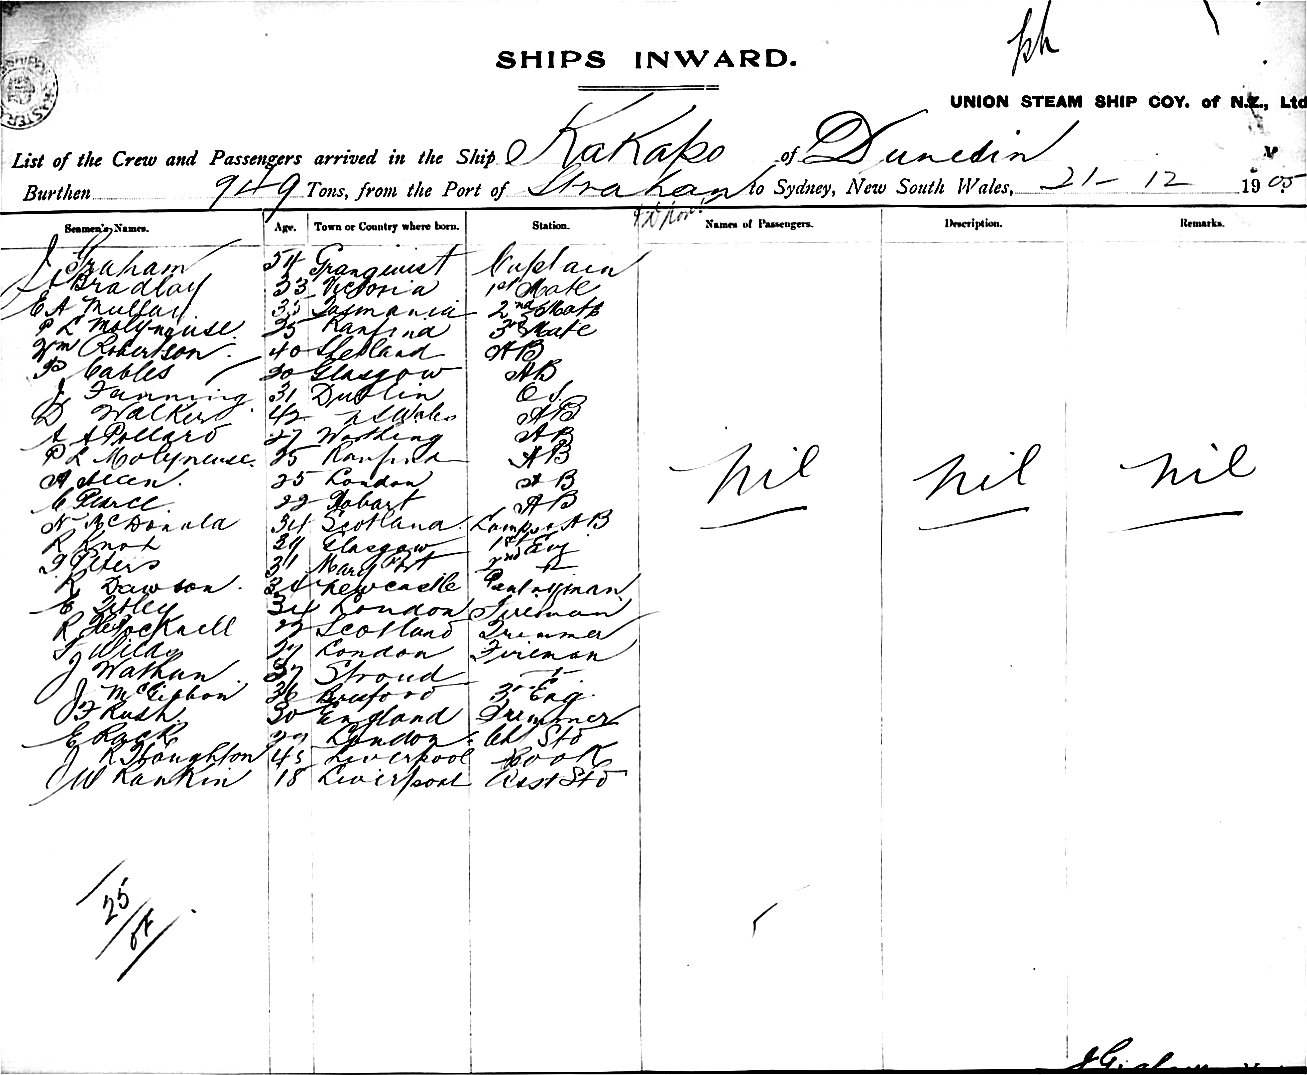 SHIPS INWARD.
UNION STEAM SHIP COY. of N.Z., Ltd
List of the Crew and Passengers arrived in the Ship Kakapo of Dunedin
Burthen 949 Tons, from the Port of Strahan to Sydney, New South Wales, 21-12 1905
Seamen's Names. Age. Town or Country where born. Station. Names of Passengers. Description. Remarks.
J Graham 54 Captain
Bradley 33 Victoria 1st Mate
E A 35 Tasmania 2nd Mate
P L Molyneuse 25 3rd Mate
Wm Robertson 40 Shetland AB
Cables 30 Glasgow AB
J Fanning 31 Dublin OS
D Walker 42 N S Wales AB
A A Pollard 27 Worthing AB
P L Molyneuse 25 AB
A Allen 25 London AB
C Pearce 22 Hobart AB
N McDonald 34 Scotland Lamps AB
R Knox 39 Glasgow 1st Eng
Peters 31 Mary Port 2nd "
R Dawson Newcastle
E London Fireman
R Scotland Trimmer
London Fireman
J Wathan 37 Stroud "
J McGibbon 36 3rd Eng.
J F Rush 30 England Trimmer
E Rack London Ch Std
J R Houghton 45 Liverpool Cook
W Rankin 18 Liverpool Asst Std
nil nil nil
25
J Graham